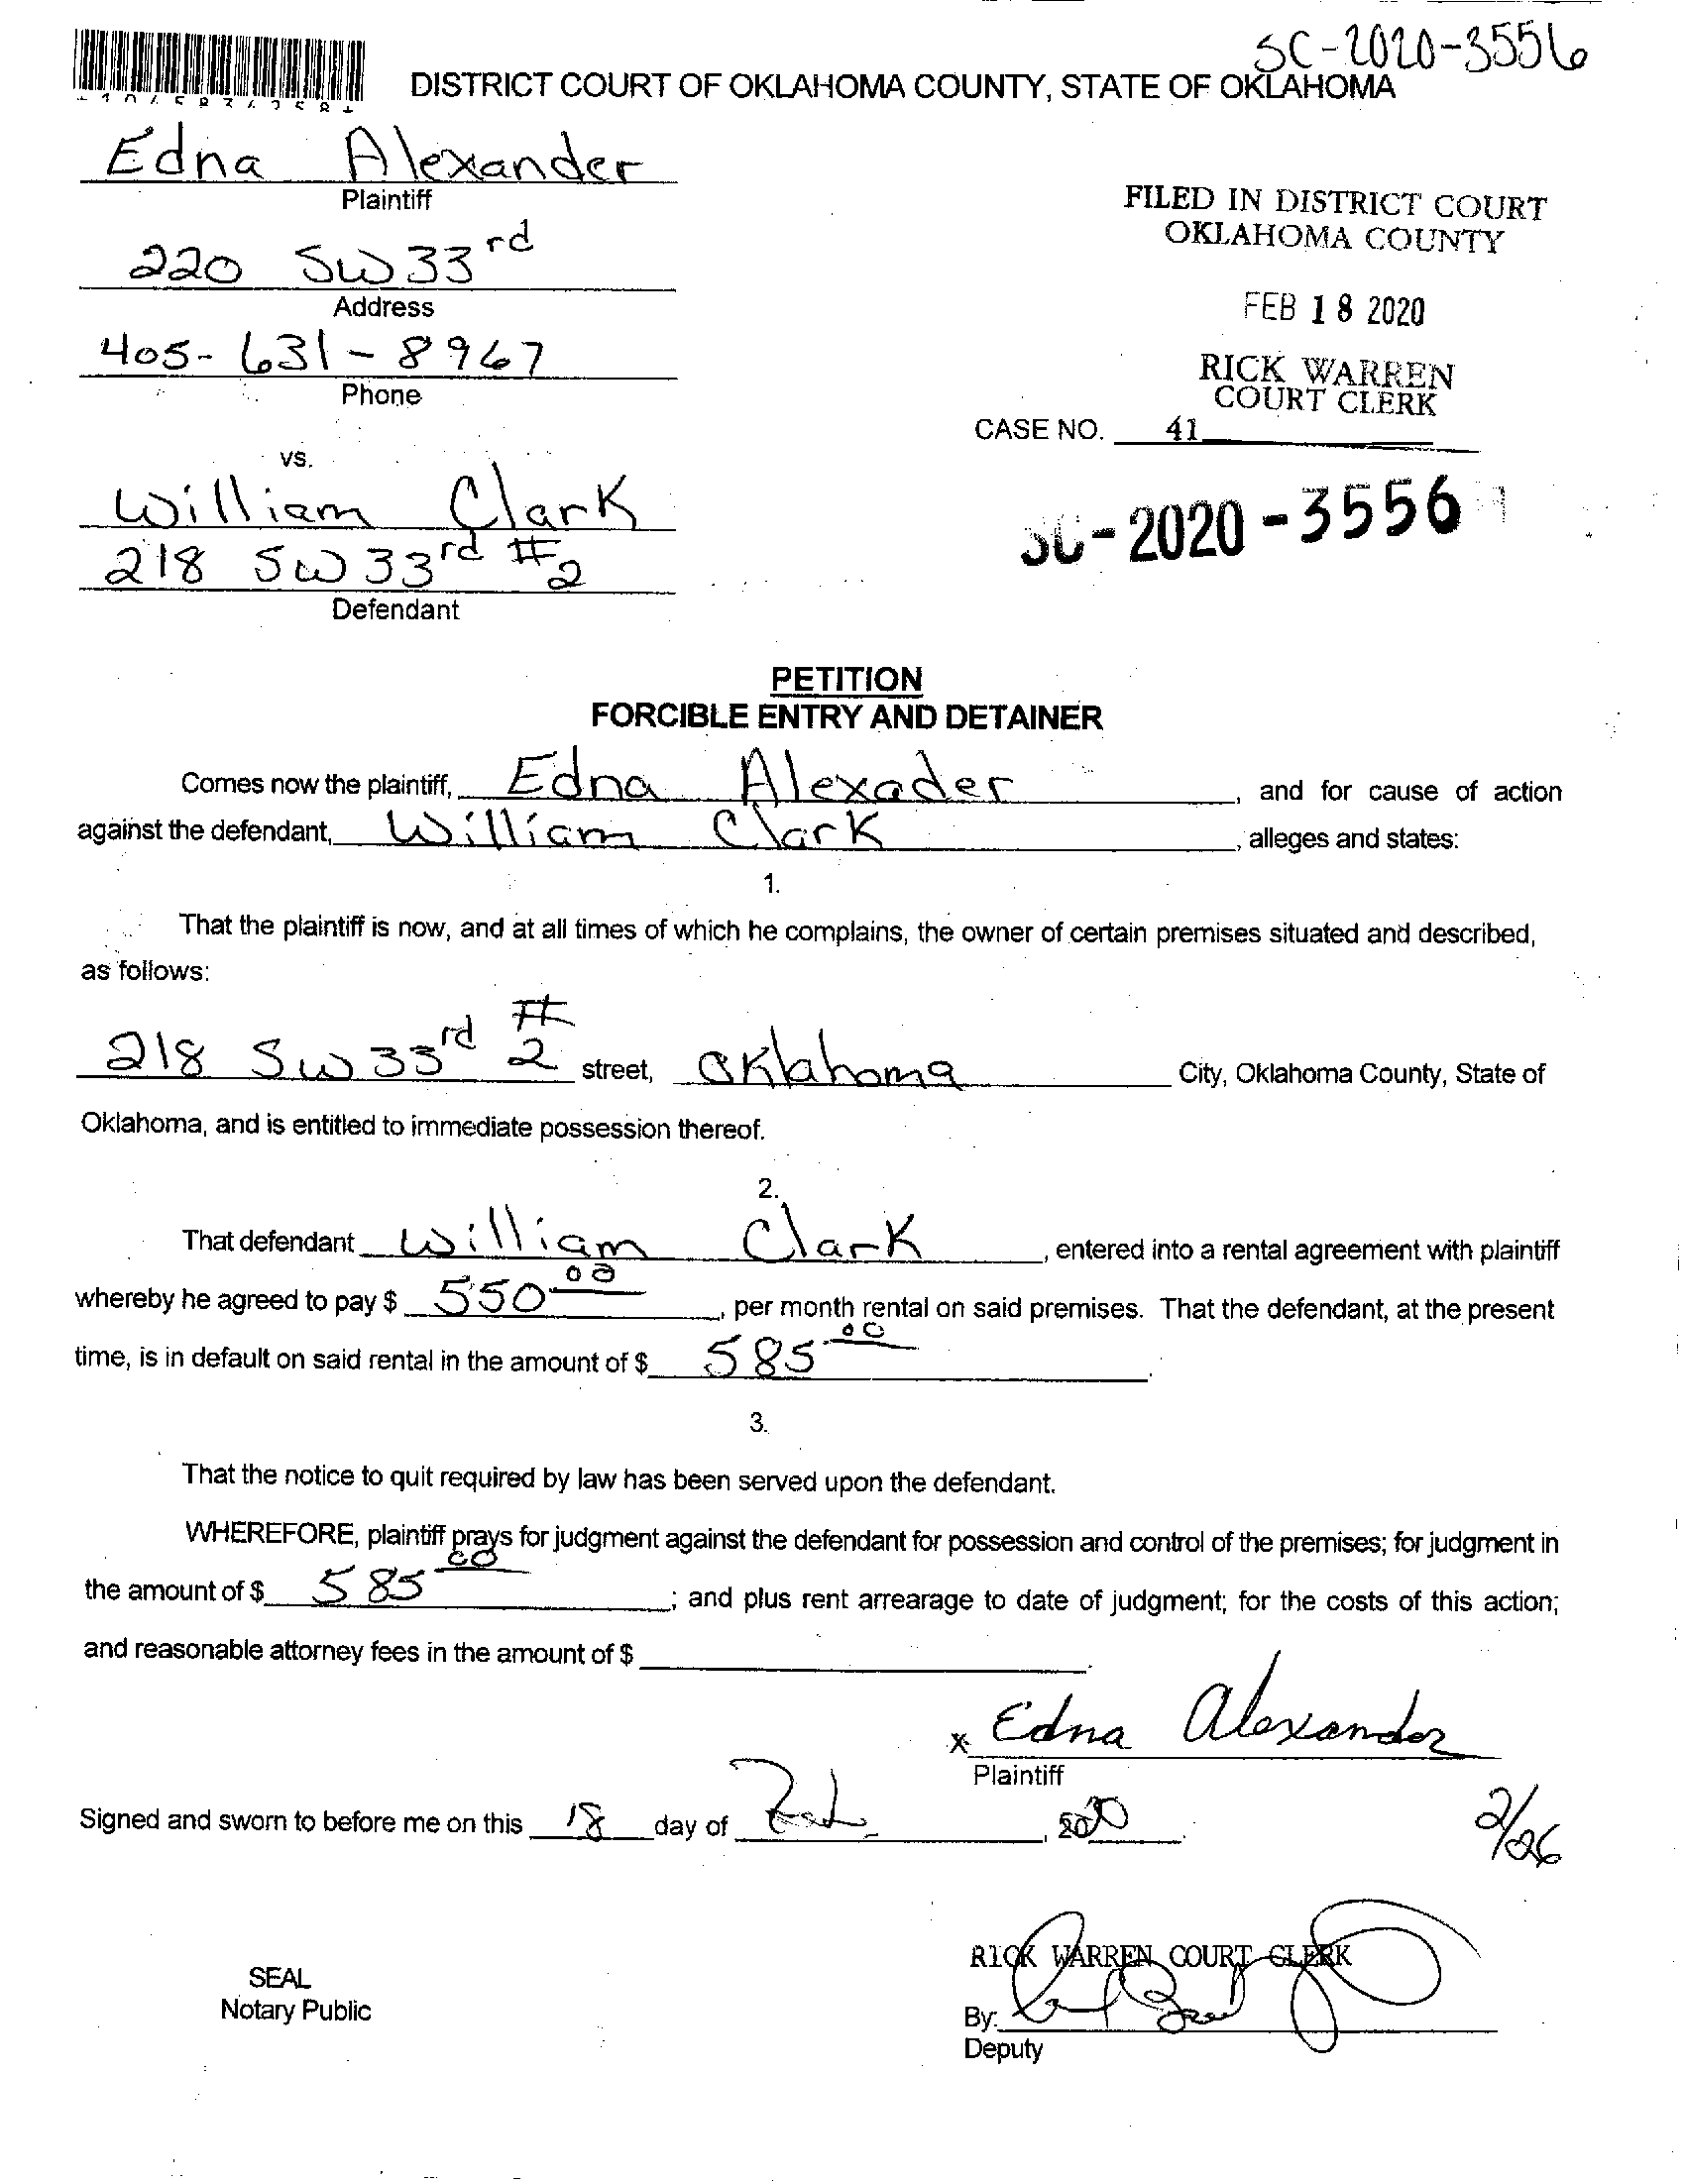 SC-2020-3556
DISTRICT COURT OF OKLAHOMA COUNTY, STATE OF OKLAHOMA
Edna Alexander
Plaintiff
220 SW 33rd
Address
405-631-8967
Phone
FILED IN DISTRICT COURT
OKLAHOMA COUNTY
FEB 18 2020
RICK WARREN
COURT CLERK
CASE NO. 41
SC-2020-3556
vs.
William Clark
218 SW 33rd #2
Defendant
PETITION
FORCIBLE ENTRY AND DETAINER
Comes now the plaintiff, Edna Alexader, and for cause of action
against the defendant, William Clark, alleges and states:
1.
That the plaintiff is now, and at all times of which he complains, the owner of certain premises situated and described,
as follows:
218 SW 33rd #2 street, Oklahoma City, Oklahoma County, State of
Oklahoma, and is entitled to immediate possession thereof.
2.
That defendant William Clark, entered into a rental agreement with plaintiff
whereby he agreed to pay $ 550 00, per month rental on said premises. That the defendant, at the present
time, is in default on said rental in the amount of $ 585 00.
3.
That the notice to quit required by law has been served upon the defendant.
WHEREFORE, plaintiff prays for judgment against the defendant for possession and control of the premises; for judgment in
the amount of $ 585 00; and plus rent arrearage to date of judgment; for the costs of this action;
and reasonable attorney fees in the amount of $
x Edna Alexander
Plaintiff
Signed and sworn to before me on this 18 day of Feb, 2020.
2/26
RICK WARREN COURT CLERK
SEAL
Notary Public
By:
Deputy